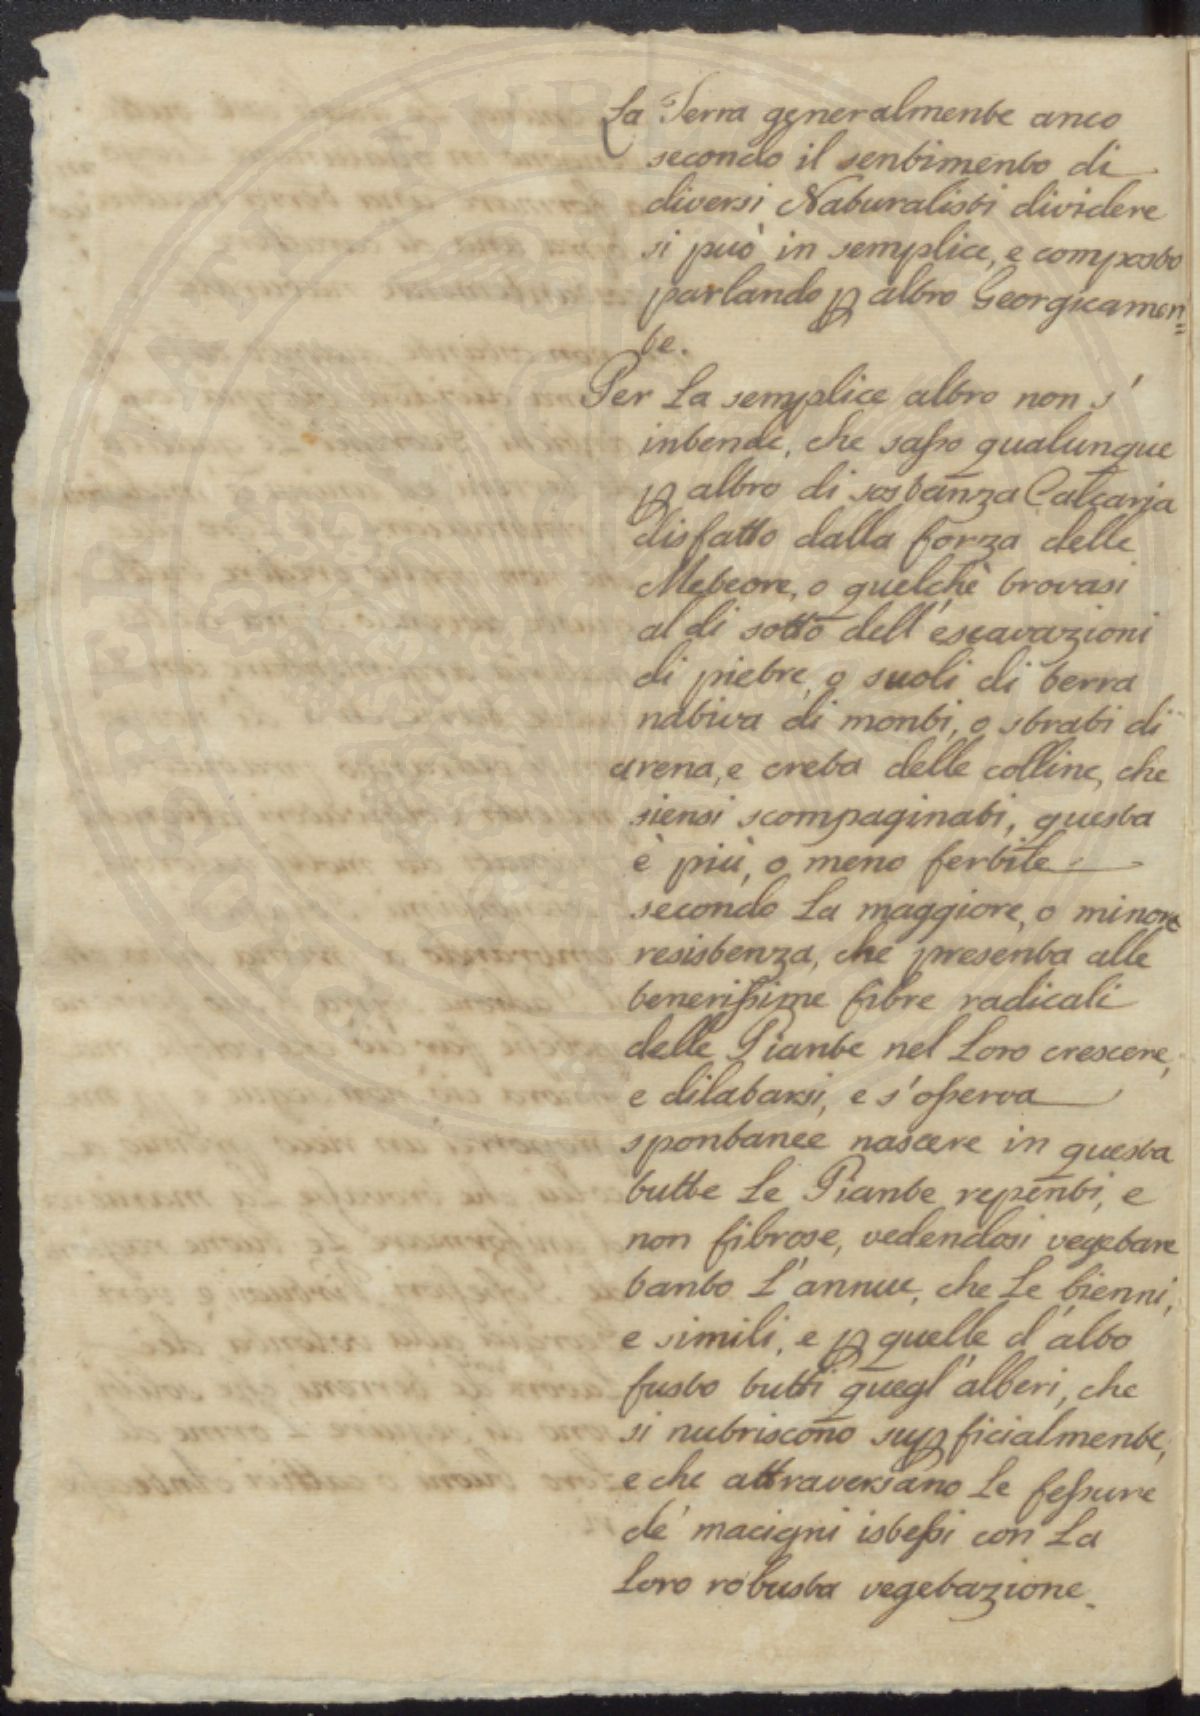 La Terra generalmente anco
secondo il sentimento di
diversi Naturalisti dividere
si può in semplice, e composto
parlando ꝑ altro Georgicamen=
te.
Per La semplice altro non s'
intende, che saſso qualunque
ꝑ altro di sostanza Calcaria
disfatto dalla forza delle
Meteore, o quelchè trovasi
al di sotto dell'escavazioni
di pietre, o suoli di terra
nativa di monti, o strati di
arena, e creta delle colline, che
siensi scompaginati, questa
è più, o meno fertile
secondo La maggiore, o minore
resistenza, che presenta alle
teneriſsime fibre radicali
delle Piante nel Loro crescere,
e dilatarsi, e s'oſserva
spontanee nascere in questa
tutte Le Piante repenti, e
non fibrose, vedendosi vegetare
tanto L'annue, che Le bienni,
e simili, e ꝑ quelle d'alto
fusto tutti quegl'alberi, che
si nutriscono suꝑficialmente,
e che attraversano Le feſsure
de' macigni isteſsi con La
Loro robusta vegetazione.